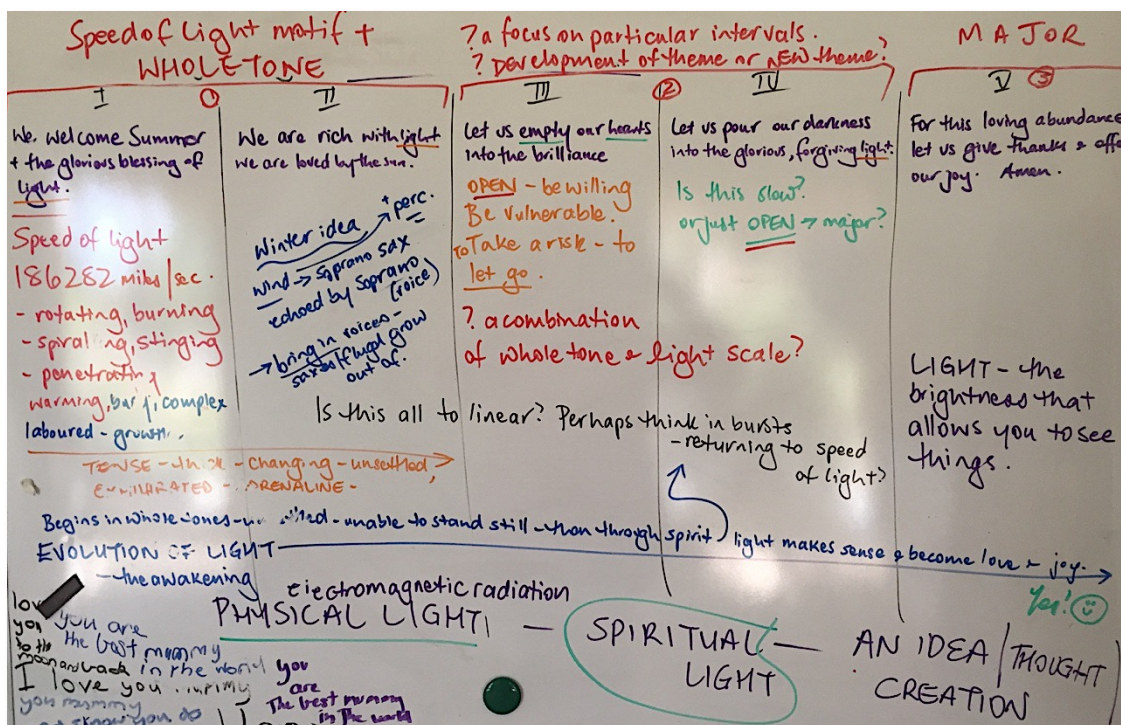 Speed of light motif +
WHOLETONE
? a focus on particular intervals.
? Development of theme or NEW theme?
MAJOR
I
①
II
III
②
IV
V
③
We welcome Summer
+ the glorious blessing of
light.
Speed of light
186282 miles/sec.
- rotating, burning
- spiraling, stinging
- penetrating
warming, complex
laboured - growth.
We are rich with light
we are loved by the sun.
Winter idea
+ perc.
wind → soprano sax
echoed by soprano
(voice)
→ bring in voices -
saxes/flugel grow
out of.
Let us empty our hearts
into the brilliance
OPEN - be willing
Be vulnerable.
To Take a risk - to
let go.
? a combination
of whole tone & light scale?
Let us pour our darkness
into the glorious, forgiving light.
Is this slow?
or just OPEN → major?
For this loving abundance
let us give thanks & offe
our joy. Amen.
LIGHT - the
brightness that
allows you to see
things.
Is this all to linear? Perhaps think in bursts
- returning to speed
of light?
TENSE - changing - unsettled,
EXHILARATED - ADRENALINE -
Begins in whole tones - unable to stand still - then through spirit light makes sense & become love & joy.
EVOLUTION OF LIGHT
- the awakening
Yes! ☺
electromagnetic radiation
PHYSICAL LIGHT — SPIRITUAL LIGHT — AN IDEA / THOUGHT
CREATION
love you are
you the best mummy
to the
moon and back in the world
I love you mummy
you mummy
you do
you
are
The best mummy
in the world